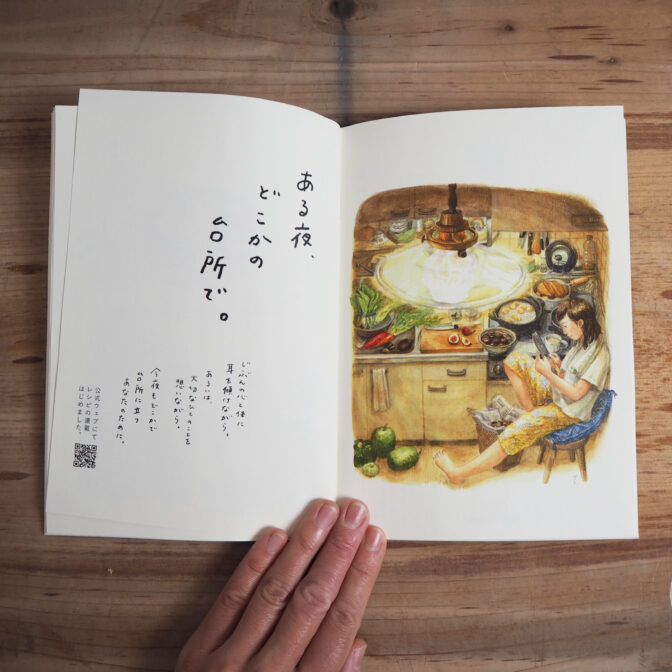 ある夜、
どこかの
台所で。
じぶんの心と体に
耳を傾けながら。
あるいは、
大切なひとのことを
想いながら。
今夜もどこかで
台所に立つ
あなたのために。
公式ウェブにて
レシピの連載
はじめました。